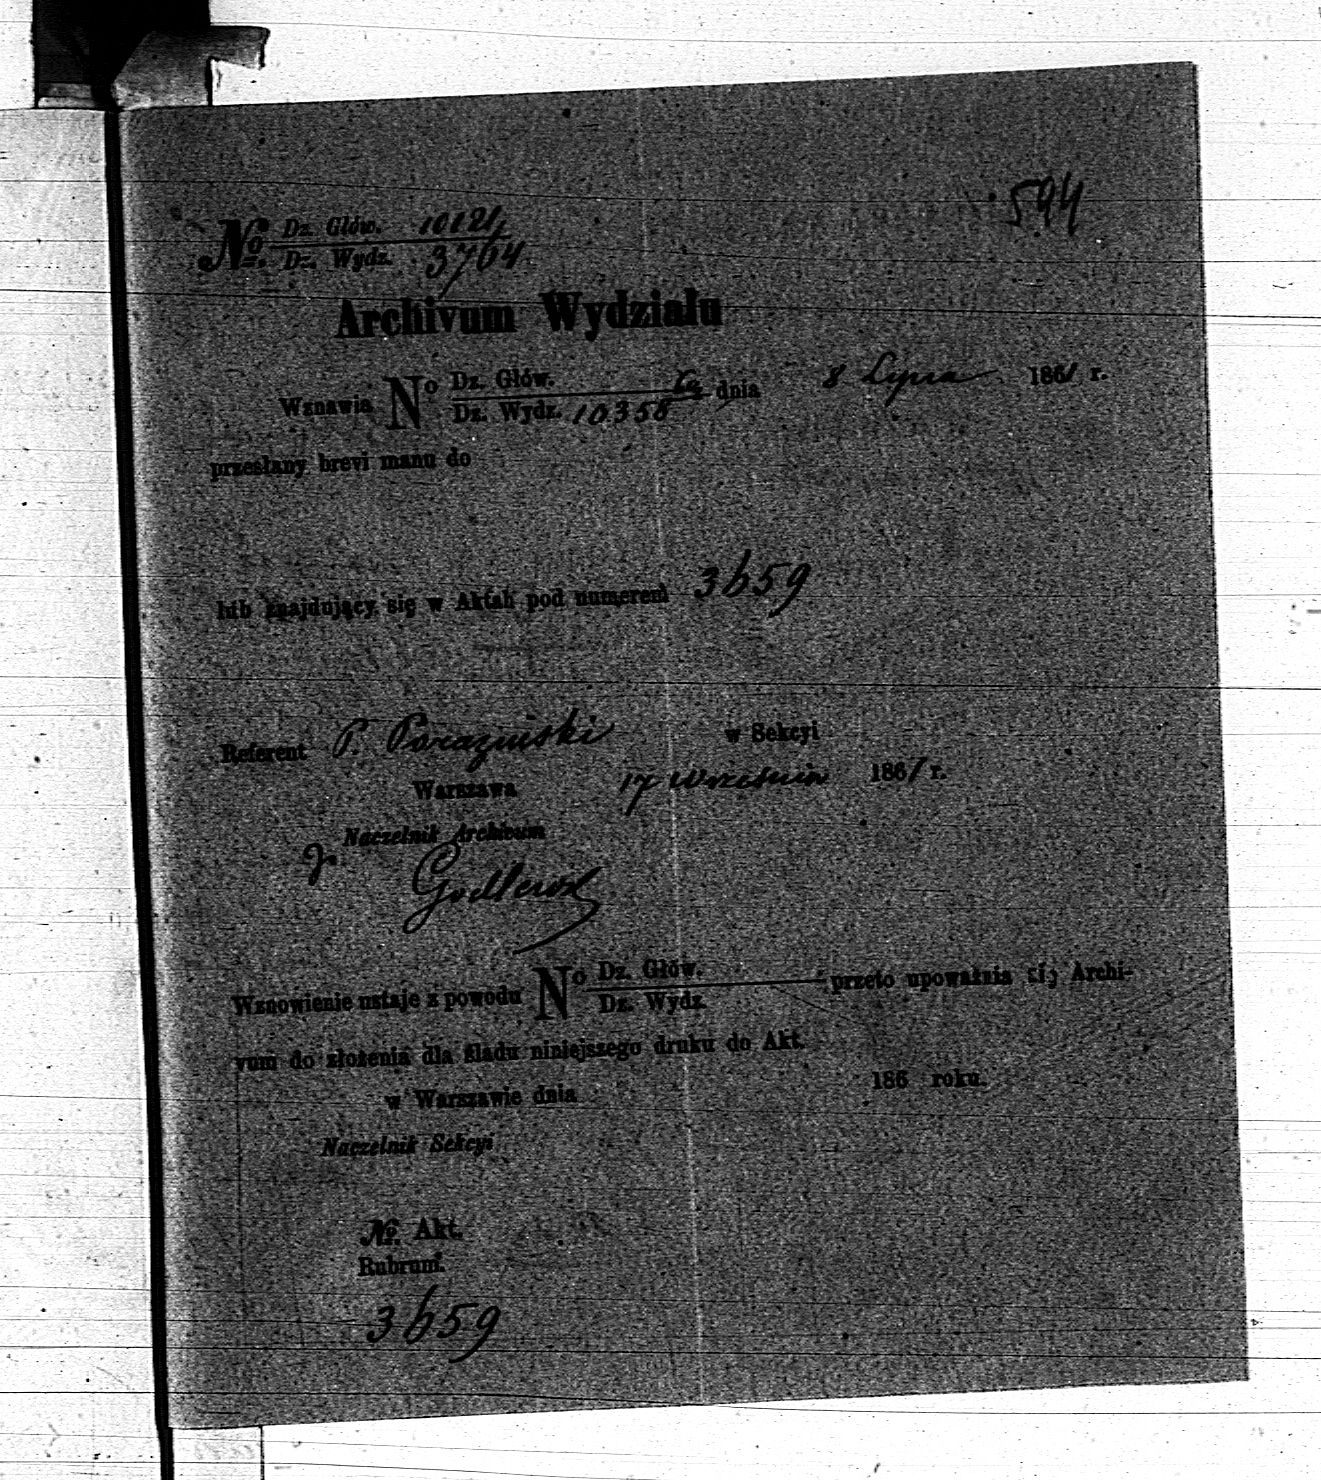 594
No. Dz. Głów. 10121/
Dz. Wydz. 3704
Archivum Wydziału
Wznawia No Dz. Głów. dnia 8 Lipca 1861 r.
Dz. Wydz. 10358
przesłany brevi manu do
lub znajdujący się w Aktah pod numerem 3659
Referent P. Paraziński w Sekcyi
Warszawa 17 Września 1861 r.
Naczelnik Archivum
Godlewsk
Wznowienie ustaje z powodu No Dz. Głów. przeto upoważnia się Archi-
Dz. Wydz.
vum do złożenia dla śladu niniejszego druku do Akt.
w Warszawie dnia 186 roku.
Naczelnik Sekcyi
No. Akt.
Rubrum.
3659